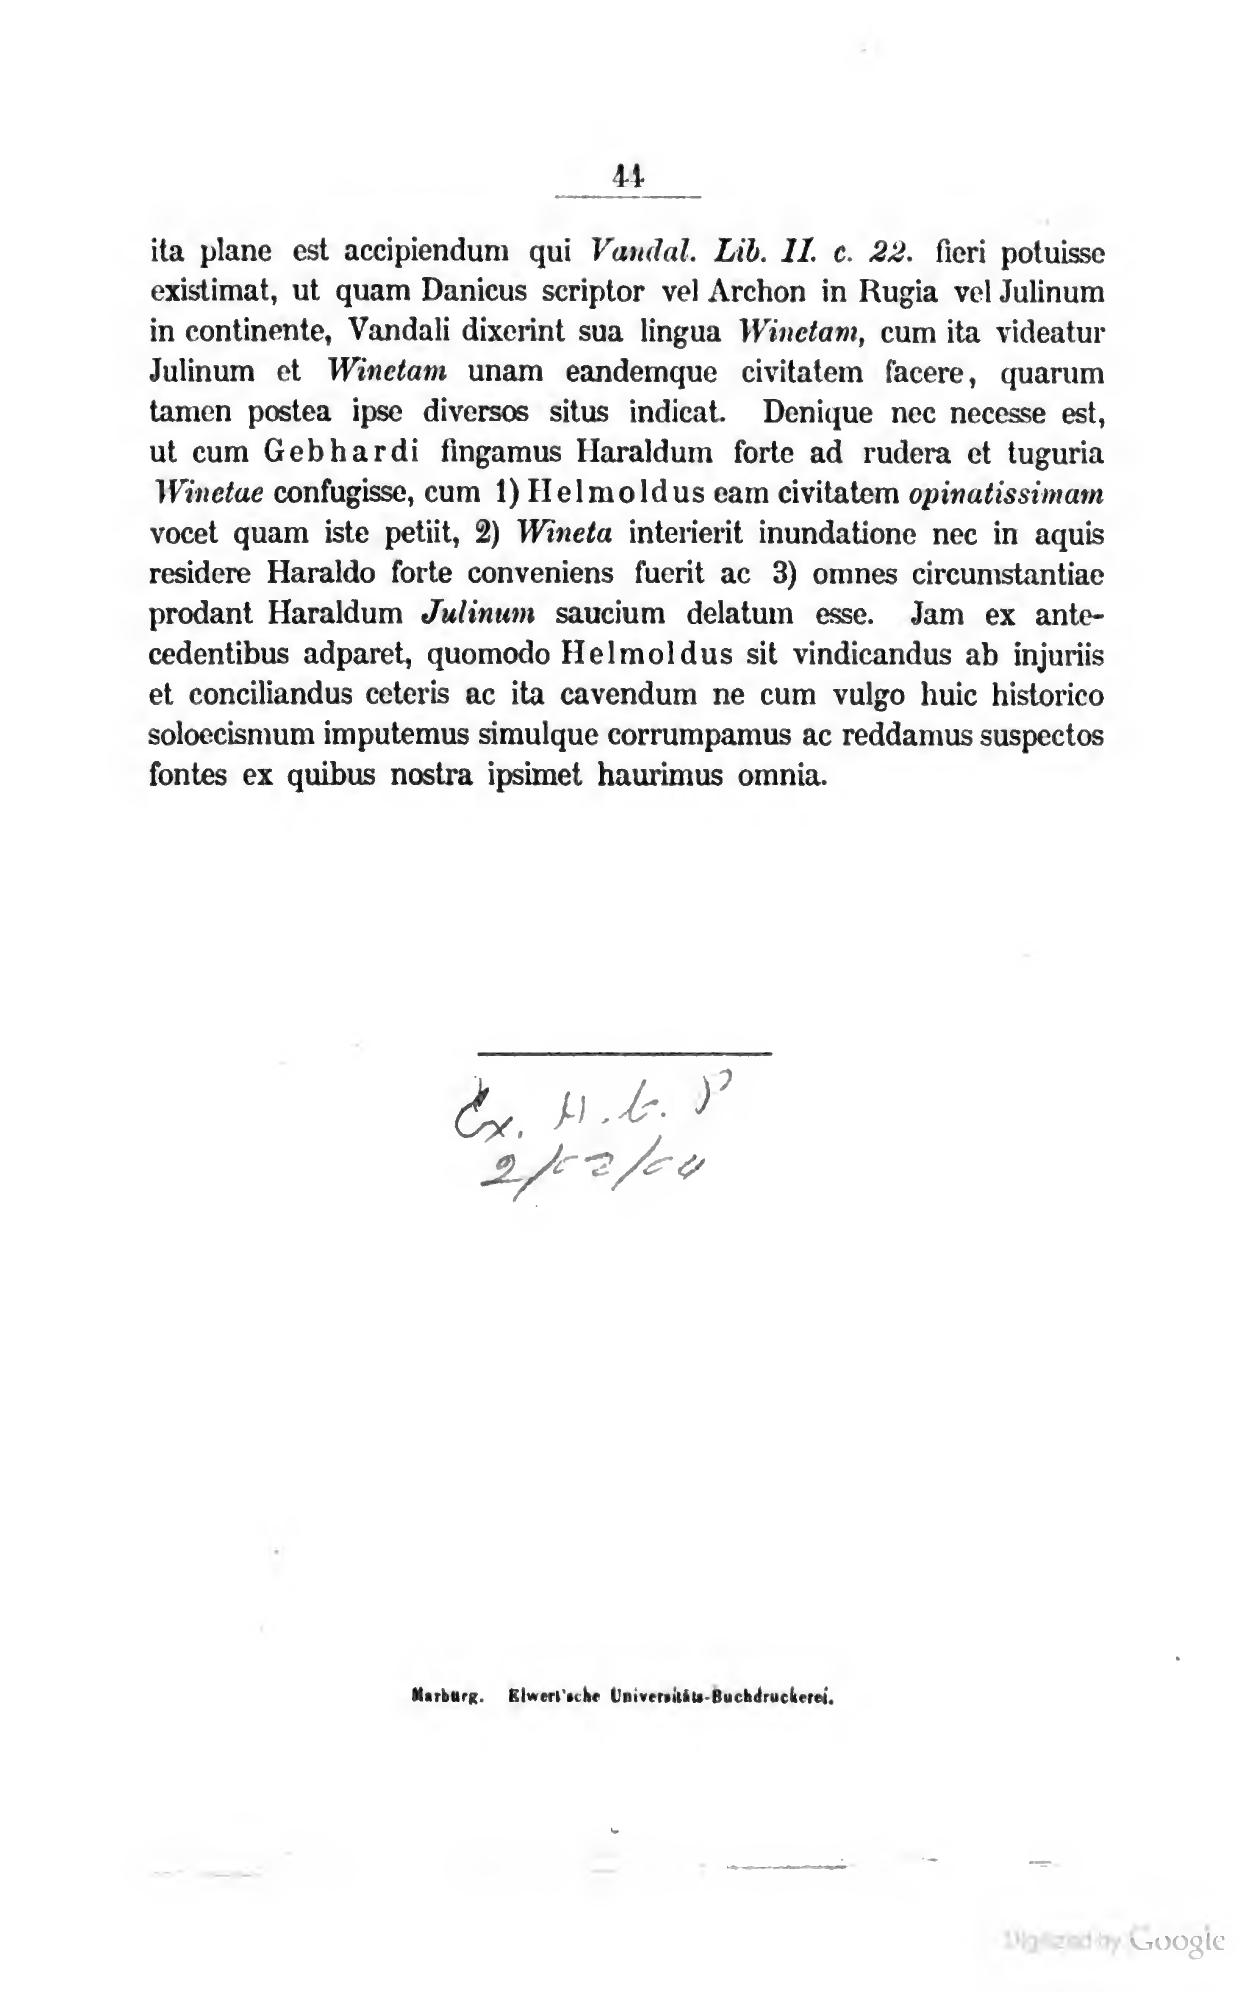 44
ita plane est accipiendum qui Vandal. Lib. II. c. 22. fieri potuisse
existimat, ut quam Danicus scriptor vel Archon in Rugia vel Julinum
in continente, Vandali dixerint sua lingua Winetam, cum ita videatur
Julinum et Winetam unam eandemque civitatem facere, quarum
tamen postea ipse diversos situs indicat. Denique nec necesse est,
ut cum Gebhardi fingamus Haraldum forte ad rudera et tuguria
Winetae confugisse, cum 1) Helmoldus eam civitatem opinatissimam
vocet quam iste petiit, 2) Wineta interierit inundatione nec in aquis
residere Haraldo forte conveniens fuerit ac 3) omnes circumstantiae
prodant Haraldum Julinum saucium delatum esse. Jam ex ante-
cedentibus adparet, quomodo Helmoldus sit vindicandus ab injuriis
et conciliandus ceteris ac ita cavendum ne cum vulgo huic historico
soloecismum imputemus simulque corrumpamus ac reddamus suspectos
fontes ex quibus nostra ipsimet haurimus omnia.
Ex.
Marburg. Elwert'sche Universitäts-Buchdruckerei.
Digitized by Google